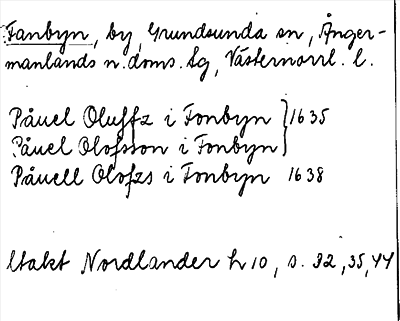 Fanbyn, by, Grundsunda sn, Ånger-
manlands n. doms. sg, Västernorrl. l.
Påuel Oluffz i Fonbyn } 1635
Påuel Olofsson i Fonbyn
Påuell Olofzs i Fonbyn 1638
Utakt Nordlander h 10, s. 32, 35, 44